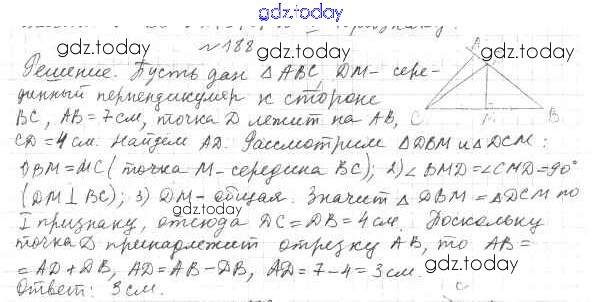 gdz.today
признаку.
gdz.today №188 gdz.today
Решение. Пусть дан △ABC, DM- сере-
динный перпендикуляр к стороне
BC, AB=7см, точка D лежит на AB,
CD=4см. Найдём AD. Рассмотрим △DBM и △DCM:
1) BM=MC (точка M-середина BC); 2) ∠BMD=∠CMD=90°
(DM⊥BC); 3) DM- общая. Значит △DBM=△DCM по
I признаку, отсюда DC=DB=4см. Поскольку
точка D принадлежит отрезку AB, то AB=
=AD+DB, AD=AB-DB, AD=7-4=3см.
Ответ: 3см.
A
C M B
gdz.today
gdz.today
gdz.today
gdz.today
gdz.today
gdz.today
gdz.today